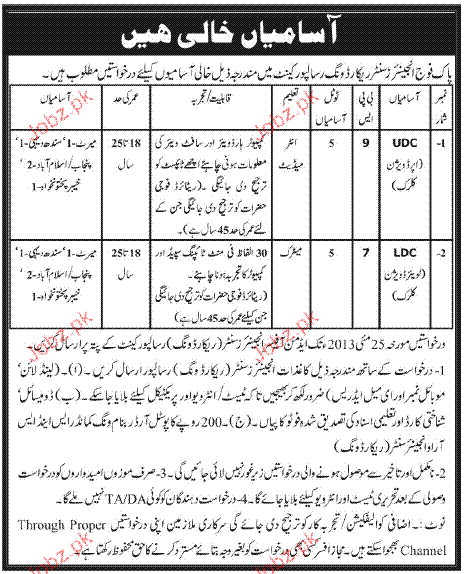 آسامیاں خالی ہیں
پاک فوج انجینئرز سنٹر ریکارڈ ونگ رسالپور کینٹ میں مندرجہ ذیل خالی آسامیوں کیلئے درخواستیں مطلوب ہیں۔
نمبر شمار آسامیاں بی پی ایس ٹوٹل آسامیاں تعلیم قابلیت/تجربہ عمر کی حد آسامیاں
1- UDC (اپر ڈویژن کلرک) 9 5 انٹر میڈیٹ کمپیوٹر ہارڈ ویئر اور سافٹ ویئر کی معلومات ہونی چاہئے اچھے ٹائپسٹ کو ترجیح دی جائیگی۔ (ریٹائرڈ فوجی حضرات کو ترجیح دی جائیگی جن کے لئے عمر کی حد 45 سال ہے) 18 تا 25 سال میرٹ-1، سندھ دیہی-1، پنجاب/اسلام آباد-2، خیبر پختونخواہ-1
2- LDC (لوئیر ڈویژن کلرک) 7 5 میٹرک 30 الفاظ فی منٹ ٹائپنگ سپیڈ اور کمپیوٹر کا تجربہ ہونا چاہئے۔ (ریٹائرڈ فوجی حضرات کو ترجیح دی جائیگی جن کیلئے عمر کی حد 45 سال ہے) 18 تا 25 سال میرٹ-1، سندھ دیہی-1، پنجاب/اسلام آباد-2، خیبر پختونخواہ-1
درخواستیں مورخہ 25 مئی 2013ء تک ایڈمن آفیسر انجینئرز سنٹر (ریکارڈ ونگ) رسالپور کینٹ کے پتہ پر ارسال کریں۔
1- درخواست کے ساتھ مندرجہ ذیل کاغذات انجینئرز سنٹر (ریکارڈ ونگ) رسالپور ارسال کریں۔ (ا)۔ (لینڈ لائن،
موبائل نمبر اور ای میل ایڈریس) ضرور لکھ کر بھیجیں تاکہ ٹیسٹ/انٹرویو اور پریکٹیکل کیلئے بلایا جا سکے۔ (ب) ڈومیسائل،
شناختی کارڈ اور تعلیمی اسناد کی تصدیق شدہ فوٹو کاپیاں۔ (ج)۔ 200 روپے کا پوسٹل آرڈر بنام ونگ کمانڈر ایس اینڈ ایس
آر او انجینئرز سنٹر (ریکارڈ ونگ)
2- نامکمل اور تاخیر سے موصول ہونے والی درخواستیں زیر غور نہیں لائی جائیں گی۔ 3- صرف موزوں امیدواروں کو درخواست
وصولی کے بعد تحریری ٹیسٹ اور انٹرویو کیلئے بلایا جائے گا۔ 4- درخواست دہندگان کو کوئی TA/DA نہیں ملے گا۔
نوٹ:۔ اضافی کوالیفکیشن/تجربہ کار کو ترجیح دی جائے گی سرکاری ملازمین اپنی درخواستیں Through Proper
Channel بھجوا سکتے ہیں۔ مجاز افسر کسی بھی درخواست کو بغیر وجہ بتائے مسترد کرنے کا حق محفوظ رکھتا ہے۔
Jobz.pk
Jobz.pk
Jobz.pk
Jobz.pk